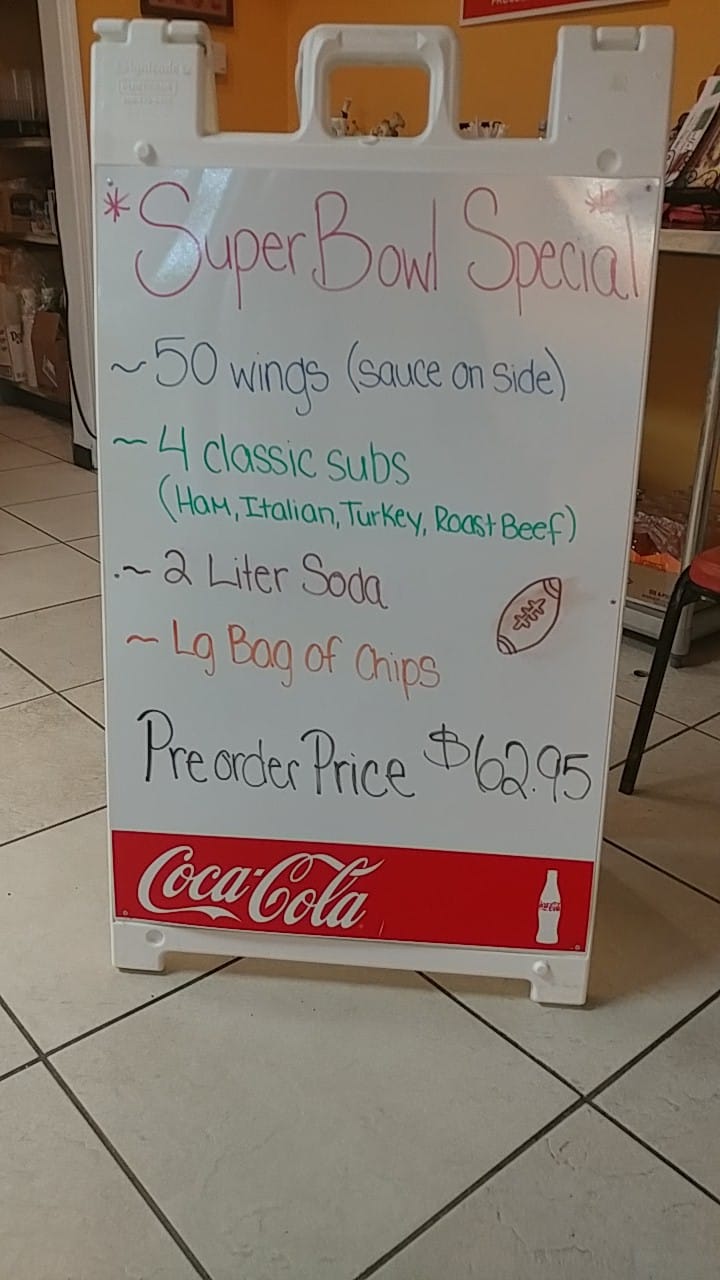 *Super Bowl Special*
~ 50 wings (sauce on side)
~ 4 classic subs
(Ham, Italian, Turkey, Roast Beef)
.~ 2 Liter Soda
~ Lg Bag of Chips
Preorder Price $62.95
Coca-Cola